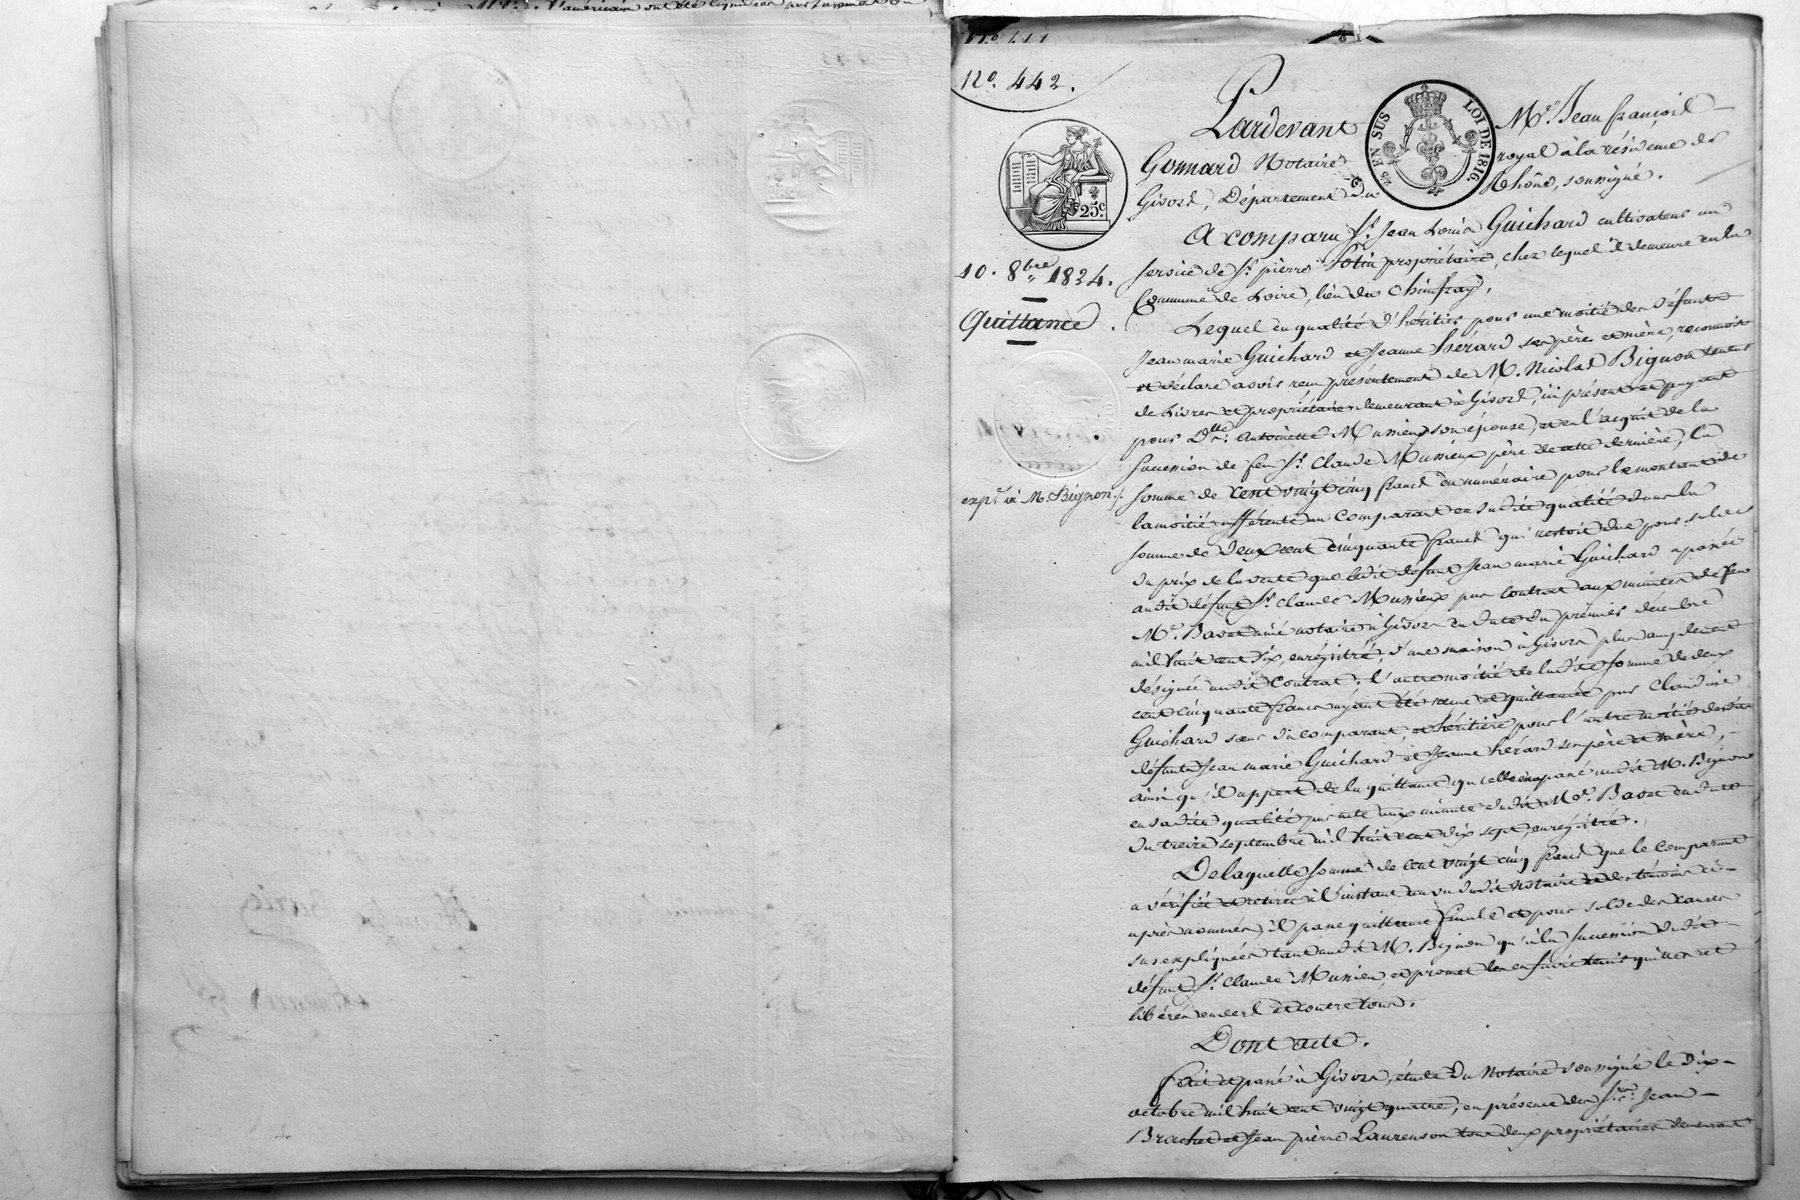 No. 442.
25 EN SUS
LOI DE 1816.
25c.
10. 8bre 1824.
Quittance.
expé. à M. Bignon
Pardevant Me. Jean françois
Gonnard Notaire royal à la résidence de
Givors, Département du Rhône, soussigné.
A comparu Sr. Jean Louis Guichard cultivateur au
service de Sr. pierre propriétaire, chez lequel il demeure en la
Commune de Loire, lieu du
Lequel en qualité d'héritier pour une moitié des défunts
Jean marie Guichard et Jeanne hérard ses père et mère, reconnoit
et déclare avoir reçu présentement de M. Nicolas Bignon teneur
de Livres et propriétaire demeurant à Givors, ici présent et payant
pour Dlle. Antoinette Mussieux son épouse, et en l'acquit de la
succession de feu Sr. Claude Mussieux père de cette dernière, la
somme de cent vingt cinq francs en numéraire pour le montant de
la moitié afférente au Comparant en sadite qualité dans la
somme de deux cent cinquante francs qui restoit due pour solde
du prix de la vente que ledit défunt Jean marie Guichard a passée
audit défunt Sr. Claude Mussieux par contrat aux minutes de feu
Me. Bavet ainé notaire à Givors en date du premier décembre
mil huit cent dix, enrégistré, d'une maison à Givors plus amplement
désignée audit Contrat; l'autre moitié de ladite somme de deux
cent cinquante francs ayant été reçue et quittancée par Claudine
Guichard sœur du comparant, et héritière pour l'autre moitié desdits
défunts Jean marie Guichard et Jeanne hérard ses père et mère,
ainsi qu'il appert de la quittance qu'elle en a passé audit M. Bignon
en sadite qualité par acte aux minutes dudit Me. Bavet en date
du treize septembre mil huit cent dix sept, enrégistré.
De laquelle somme de cent vingt cinq francs que le Comparant
a vérifiée et retirée à l'instant au vu dudit notaire et des témoins ci-
après nommés, il passe quittance finale et pour solde des causes
sus expliquées tant audit M. Bignon qu'à la succession dudit
défunt Sr. Claude Mussieux, et promet les en faire tenir quittes et
libérés envers et contre tous.
Dont acte.
Fait et passé à Givors, étude du Notaire soussigné le dix
octobre mil huit cent vingt quatre, en présence des Srs. Jean
Brachet et Jean pierre Laurenson tous deux propriétaires demeurant